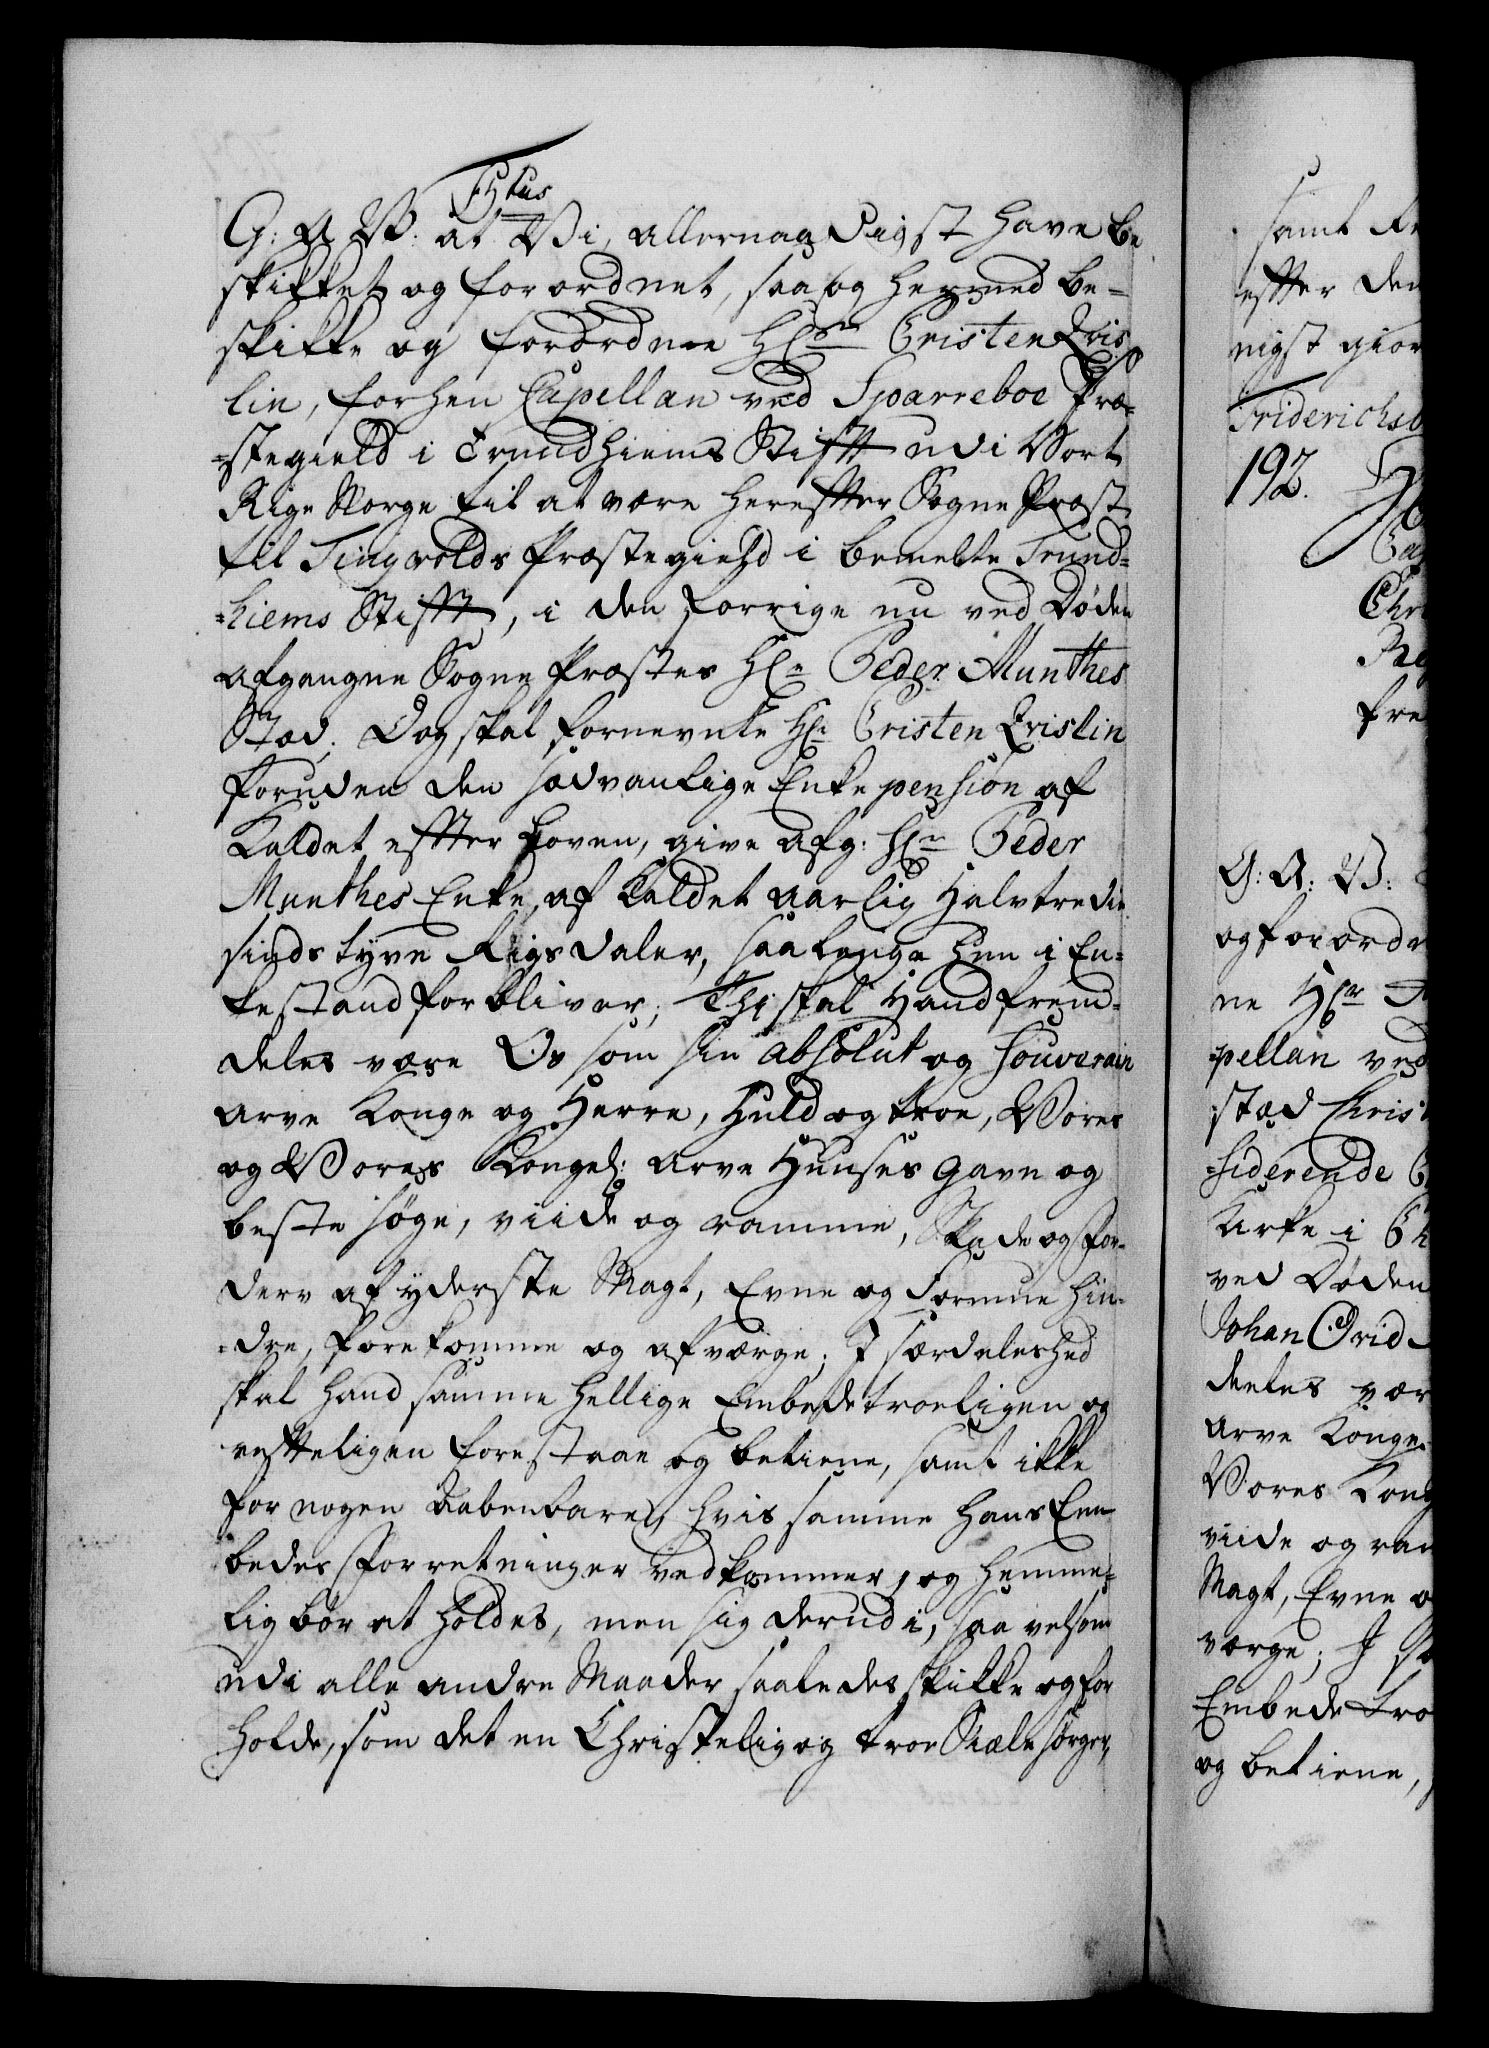 Tytus
G: A V: at Vi, allernaadigst have be
skikket og forordnet, saa og hermed be-
skikke og forordne Hr Cristen Qvis
lin, forhen Capellan ved Sparreboe Præ-
=stegield i Trundhiems Stifft udi Vort
Rige Norge til at være herefter Sogne Præst
til Tingvolds Præstegield i bemelte Trund=
=hiems Stifft, i den forrige nu ved Døden
afgangne Sogne Præstes Hr Peder Munthes
Stæd; Dog skal fornevnte Hr Cristen Qvislin
foruden den sædvanlige Enke pension af
Kaldet effter Loven, give afg: Hr Peder
Munthes Enke, af Kaldet aarlig Halvtredie
sinds tyve Rigsdaler, saa lenge hun i En=
kestand forbliver; Thi skal Hand frem=
deles være Os som sin absolut og souverain
Arve Konge og Herre, Huld og troe, Vores
og Vores Kongel: Arve Huuses Gavn og
beste søge, viide og ramme, Skade og For=
derv af yderste Magt, Evne og Formue hin-
=dre, forekomme og afværge; I særdeleshed
skal hand samme hellige Embede troeligen og
retteligen forestaae og betiene, samt ikke
for nogen aabenbare, hvis samme hans Em-
bedes Forretninger vedkommer, og hemme=
lig bør at holdes, men sig derudi, saa velsom
udi alle andre Maader saaledes skikke og for
holde, som det en Christelig og troe Siæle sørger,
samt
effter den
nigst gior
Friderichs
192.
G: A: V:
og forord
ne Hr
pellan ved
stæd Chris
=siderende
Kirke i
ved Døden
Johan Frid
deeles vær
Arve Konge
Vores Kong
viide og ram
Magt, Evne o
værge; I sæ
Embede tro
og betiene,